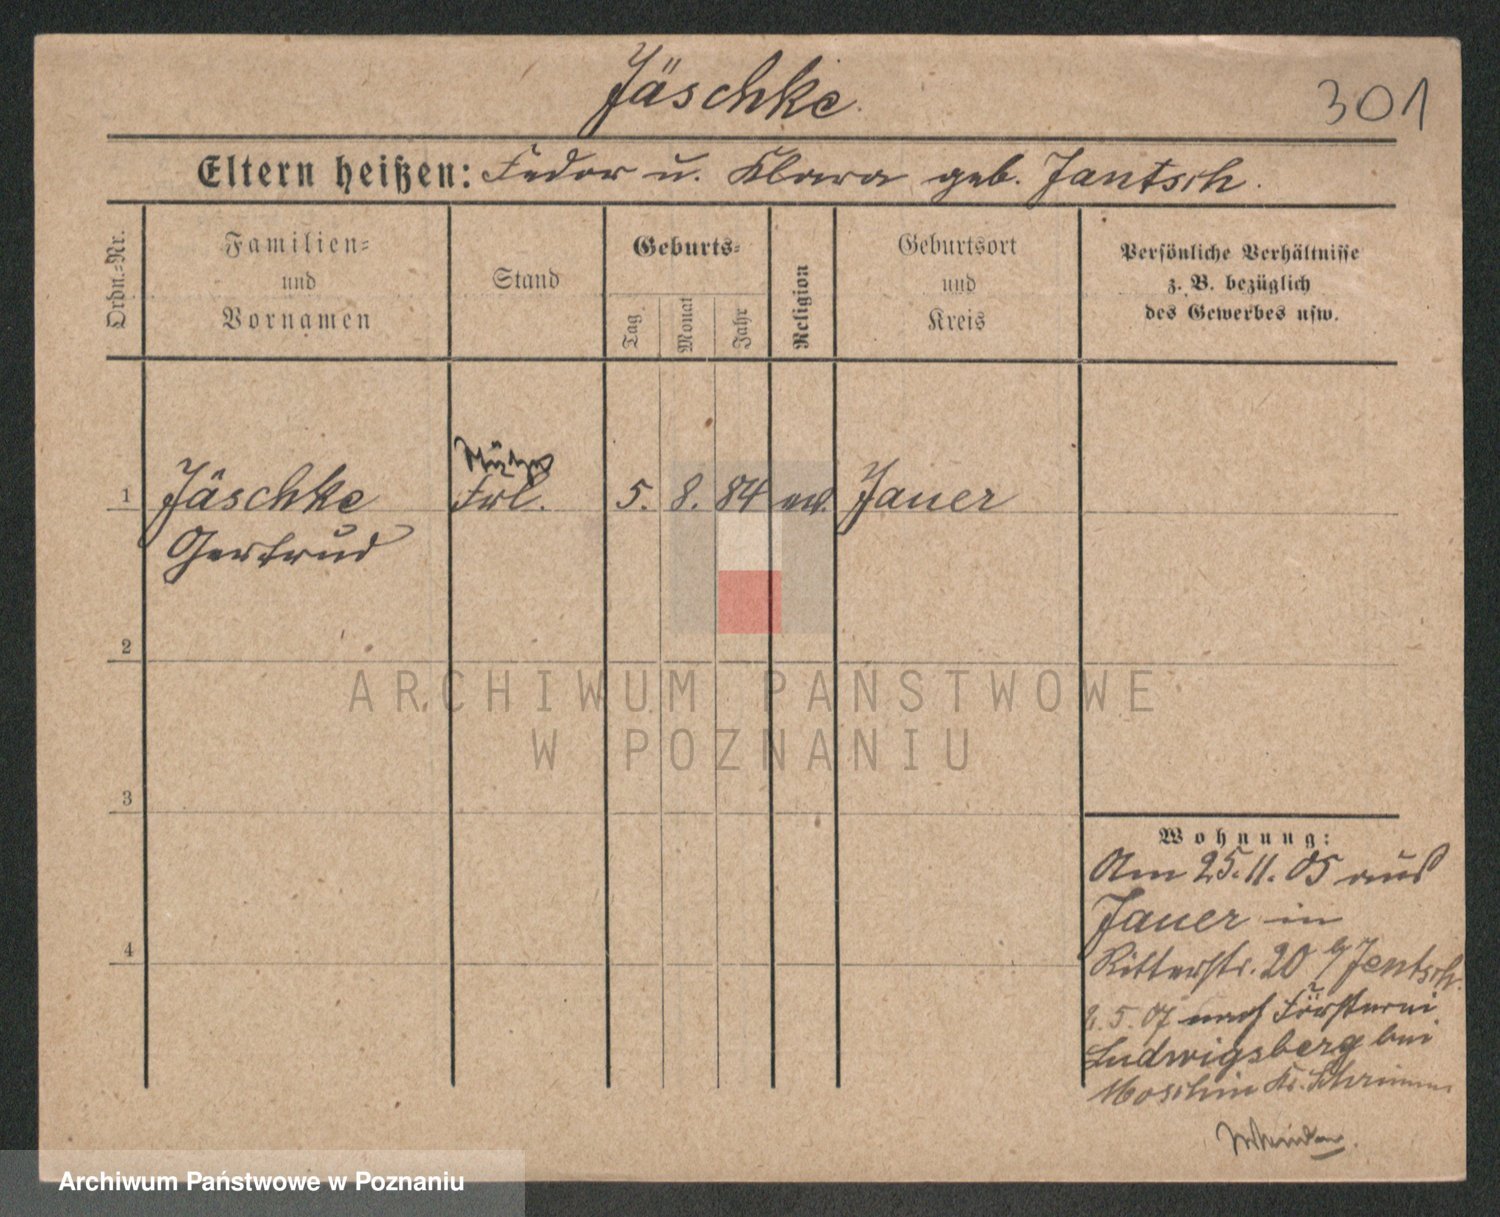 Jäschke
301
Eltern heißen: Fedor u. Klara geb. Jantsch.
Ordn.-Nr.
Familien-
und
Vornamen
Stand
Geburts-
Tag
Monat
Jahr
Religion
Geburtsort
und
Kreis
Persönliche Verhältnisse
z. B. bezüglich
des Gewerbes usw.
1 Jäschke Frl. 5. 8. 84 ev. Jauer
Gertrud
2
3
4
Wohnung:
Am 25.11.05 aus
Jauer in
Ritterstr. 20 b/Jentsch.
2.5.07 nach Försterei
Ludwigsberg bei
Moschin Kr. Schrimm
ARCHIWUM PAŃSTWOWE
W POZNANIU
Archiwum Państwowe w Poznaniu